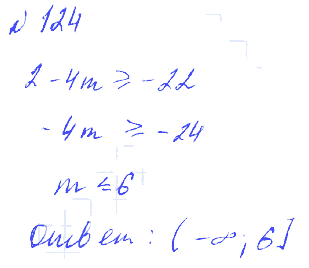 № 124
2 - 4m ≥ -22
-4m ≥ -24
m ≤ 6
Ответ: (-∞; 6]